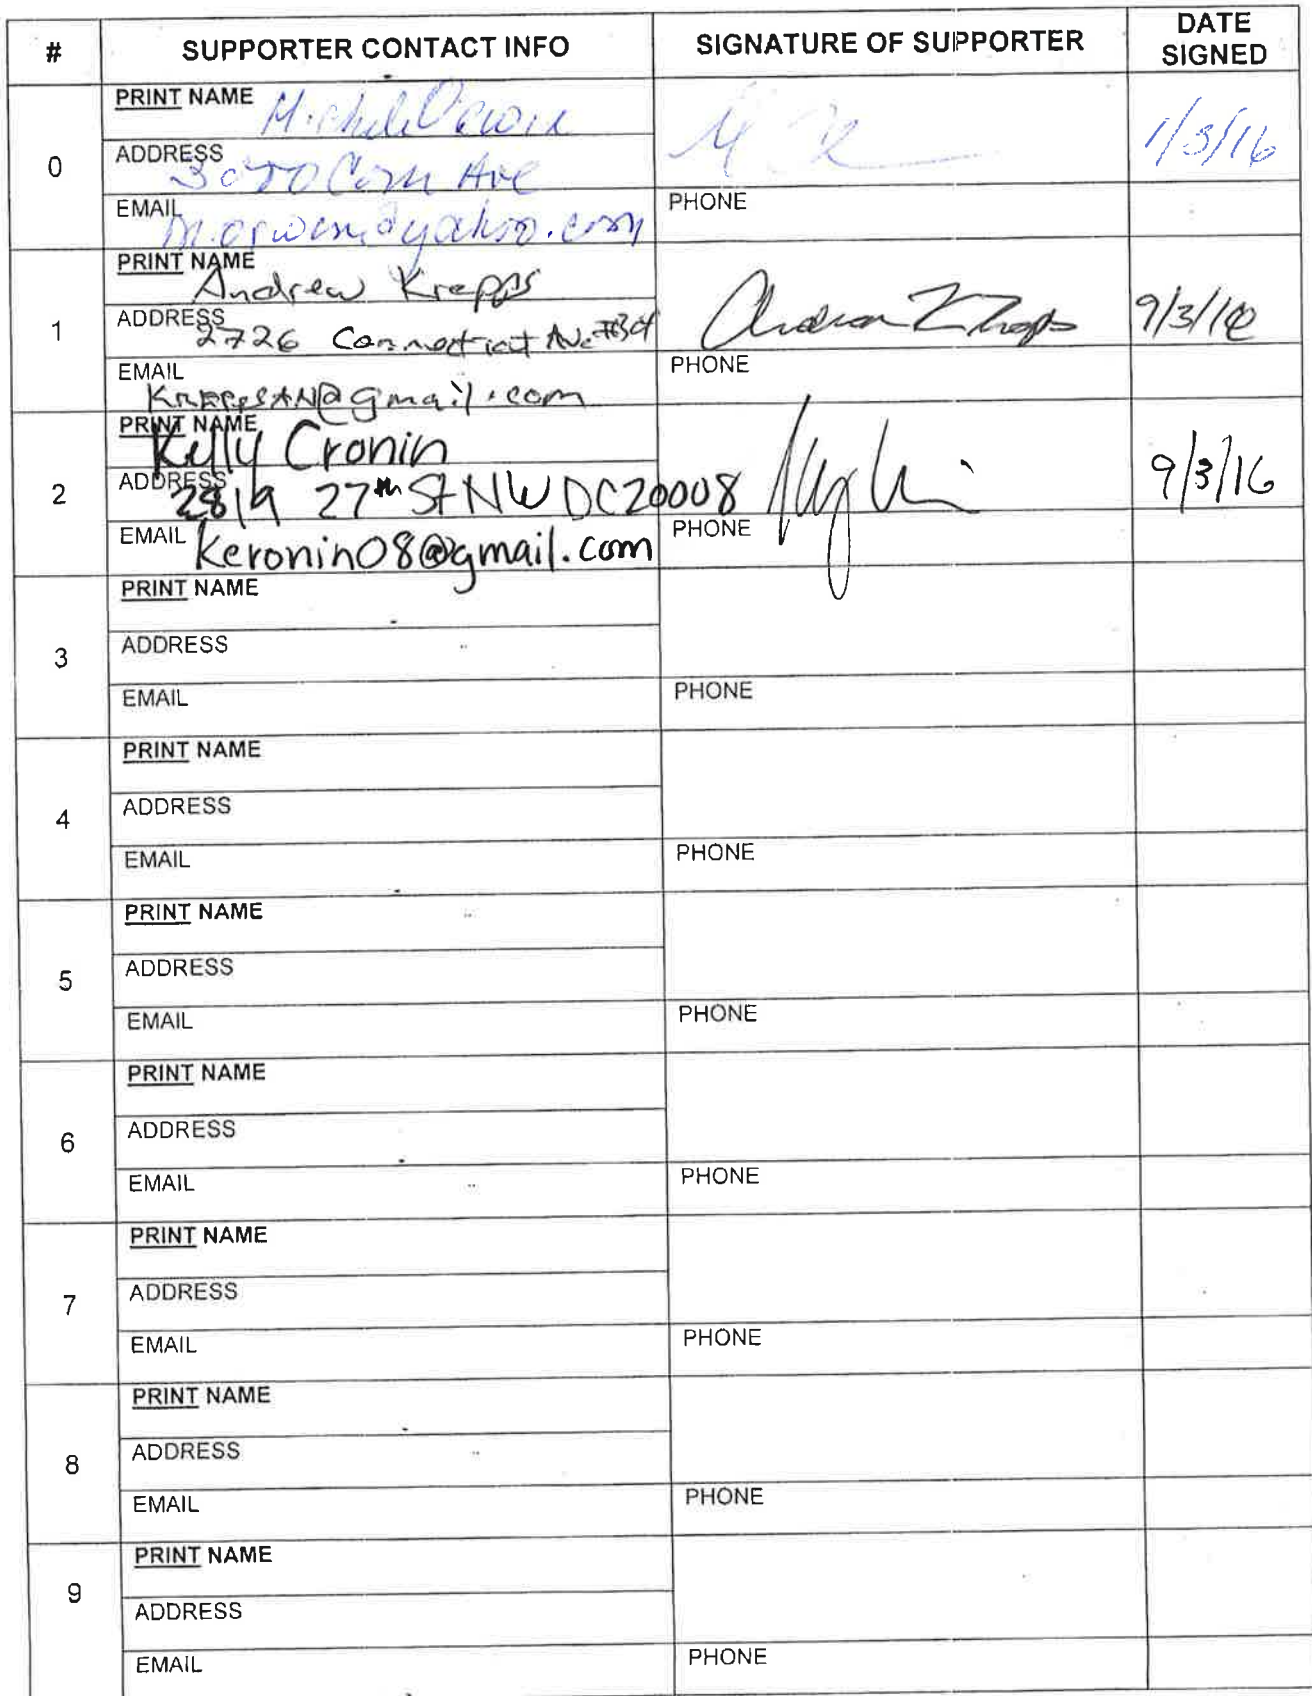 # SUPPORTER CONTACT INFO SIGNATURE OF SUPPORTER DATE SIGNED
0
PRINT NAME Michele
ADDRESS Ave
EMAIL
PHONE
1/3/16
1
PRINT NAME Andrew Krepps
ADDRESS 2726 Connecticut Ave
EMAIL KREPPSAN@gmail.com
PHONE
9/3/16
2
PRINT NAME Kelly Cronin
ADDRESS 2819 27th St NW DC 20008
EMAIL kcronin08@gmail.com
PHONE
9/3/16
3
PRINT NAME
ADDRESS
EMAIL
PHONE
4
PRINT NAME
ADDRESS
EMAIL
PHONE
5
PRINT NAME
ADDRESS
EMAIL
PHONE
6
PRINT NAME
ADDRESS
EMAIL
PHONE
7
PRINT NAME
ADDRESS
EMAIL
PHONE
8
PRINT NAME
ADDRESS
EMAIL
PHONE
9
PRINT NAME
ADDRESS
EMAIL
PHONE